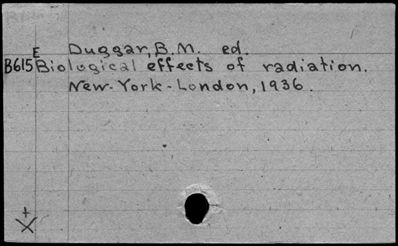 E Duggar, B.M. ed.
B615 Biological effects of radiation.
New-York-London, 1936.